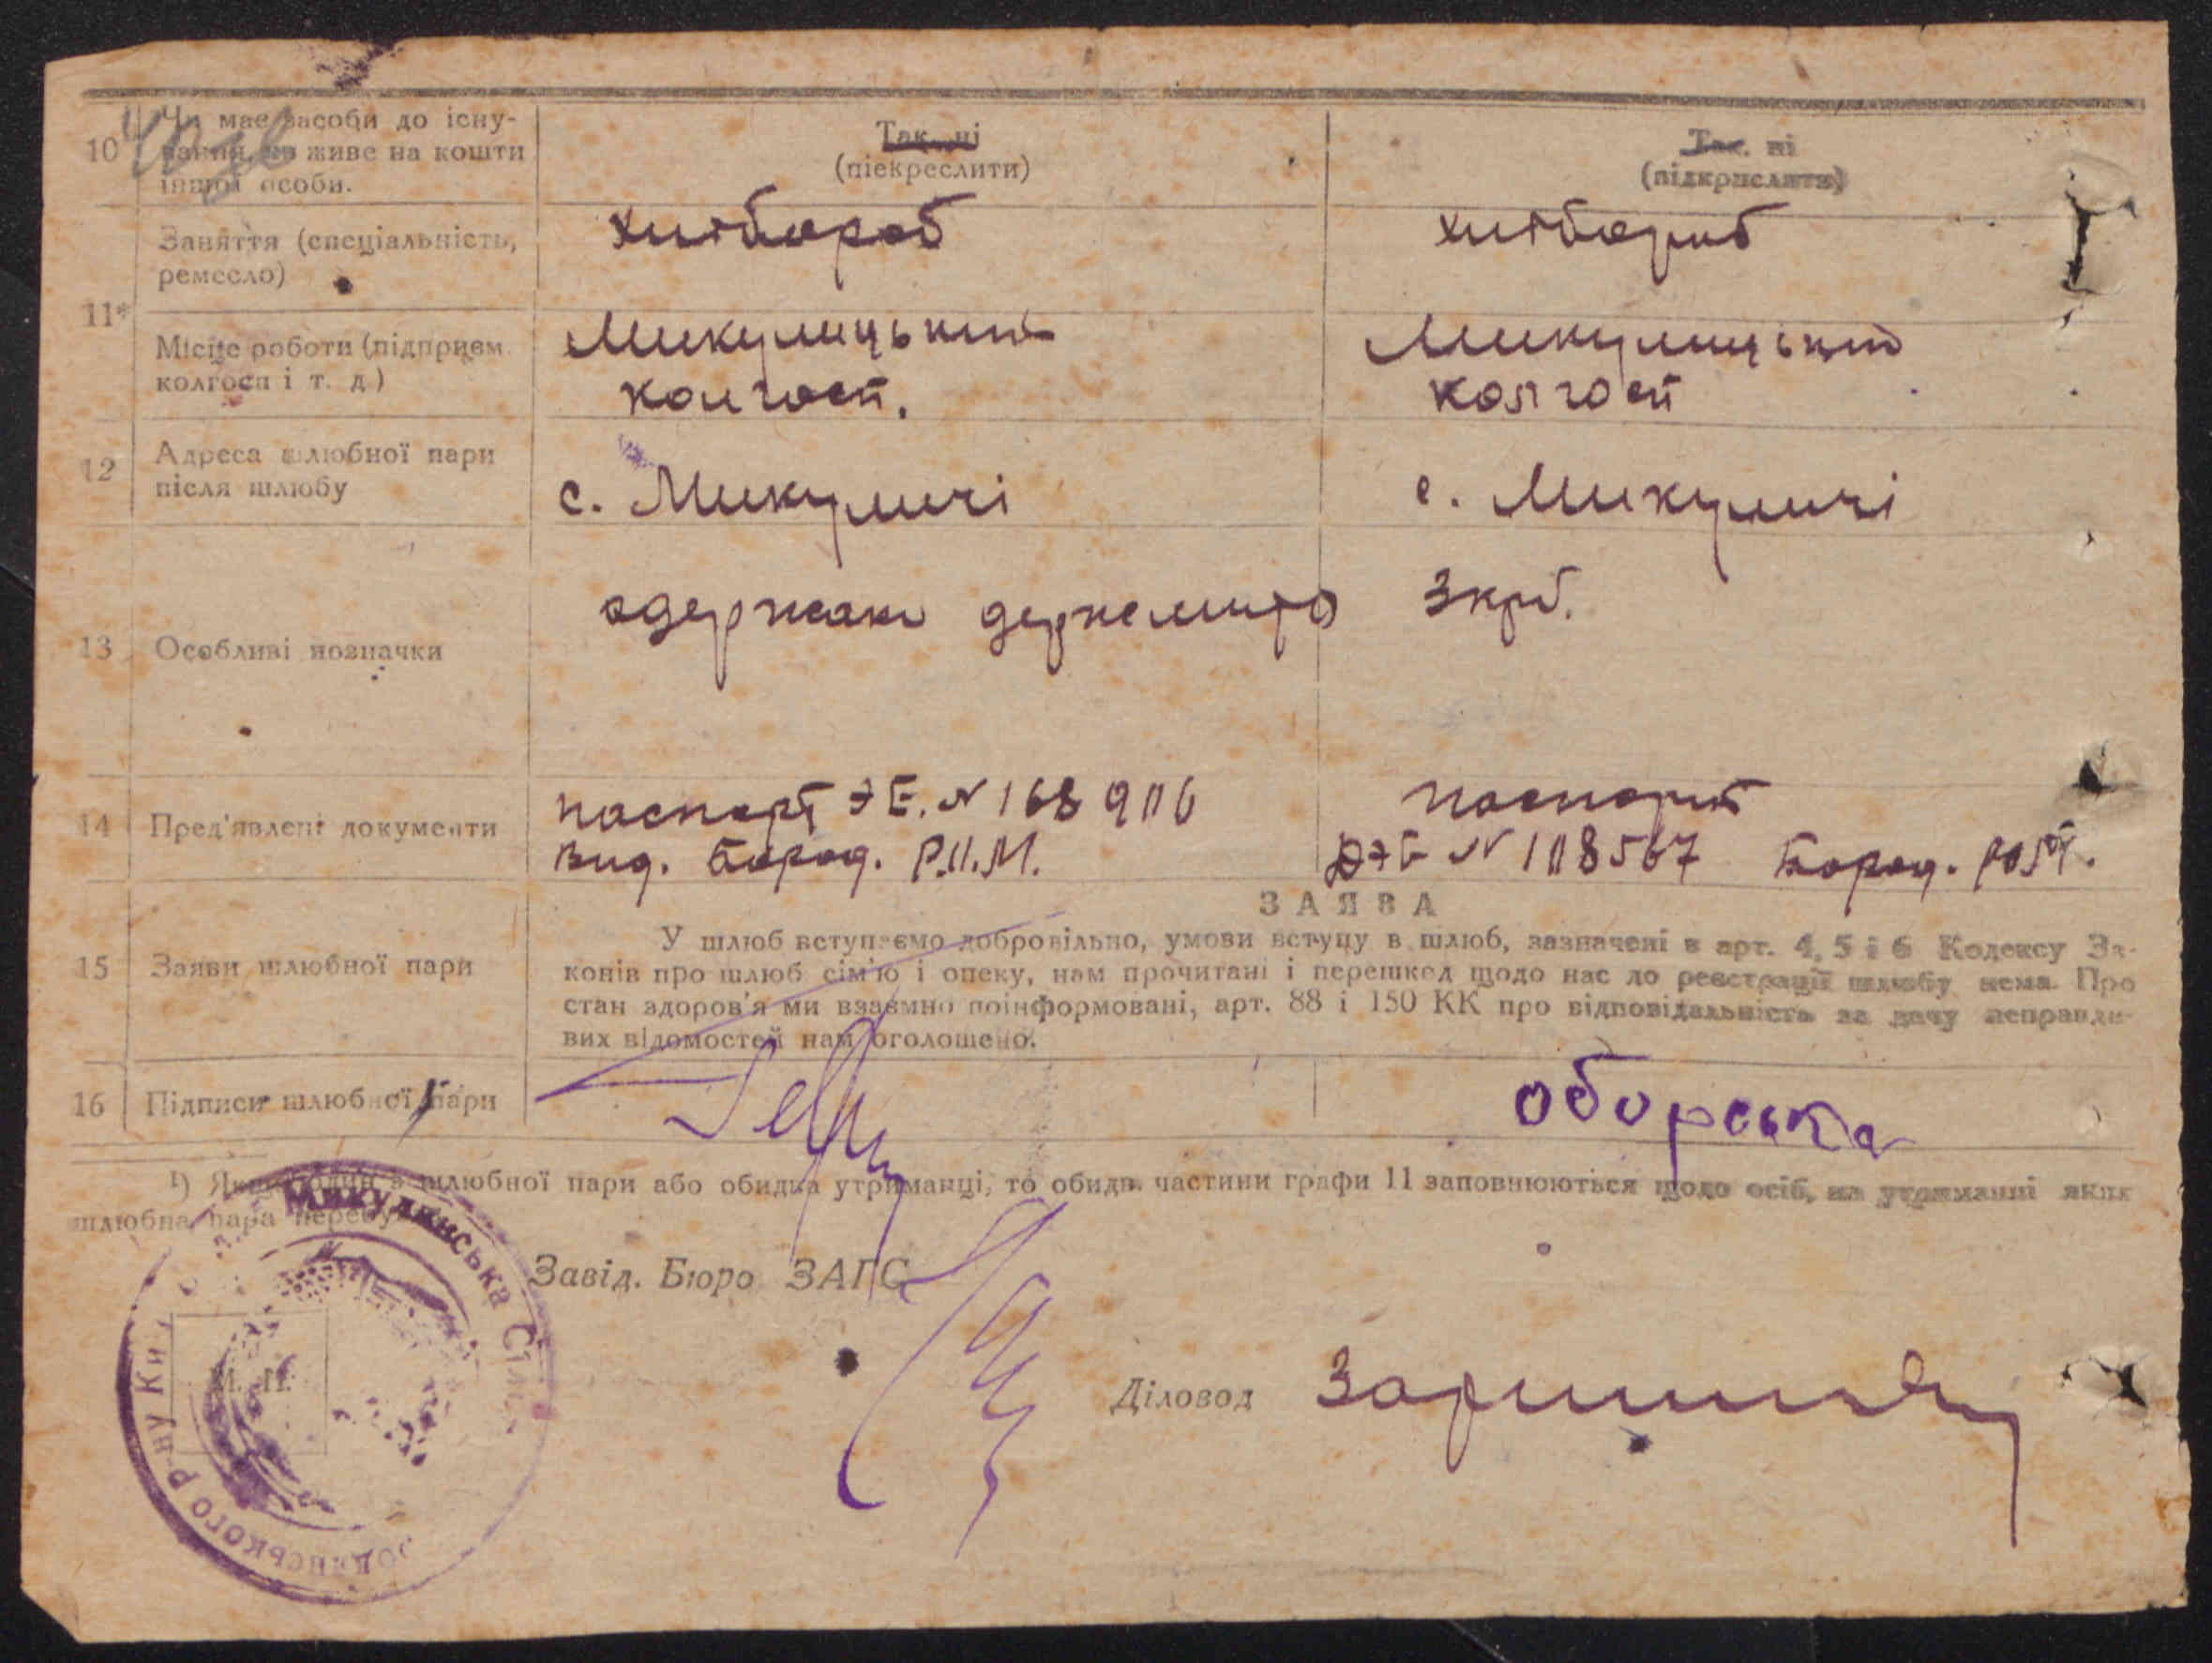 10 Чи має засоби до існу-
вання, чи живе на кошти
іншої особи.
Так. ні
(піекреслити)
Так. ні
(підкрислити)
11*
Заняття (спеціальність,
ремесло)
хлібороб
хлібороб
Місце роботи (підприєм.
колгосп і т. д.)
Микулицький
колгосп.
Микулицький
колгосп
12 Адреса шлюбної пари
після шлюбу
с. Микуличі
с. Микуличі
13 Особливі позначки
одержано держмито 3 крб.
14 Пред'явлені документи
паспорт ЭЕ. N 168 906
вид. Бород. Р.М.
паспорт
N 108567 Бород.
15 Заяви шлюбної пари
ЗАЯВА
У шлюб вступаємо добровільно, умови вступу в шлюб, зазначені в арт. 4, 5 і 6 Кодексу За-
конів про шлюб сім'ю і опеку, нам прочитані і перешкод щодо нас до реєстрації шлюбу нема. Про
стан здоров'я ми взаємно поінформовані, арт. 88 і 150 КК про відповідальність за дачу неправди-
вих відомостей нам оголошено.
16 Підписи шлюбної пари
оборська
¹) Якщо один з шлюбної пари або обидва утриманці, то обидві частини графи 11 заповнюються щодо осіб, на утриманні яких
шлюбна пара перебуває
Завід. Бюро ЗАГС
Діловод
М. П.
Микулинська Сіль
одянського р-ну Ки